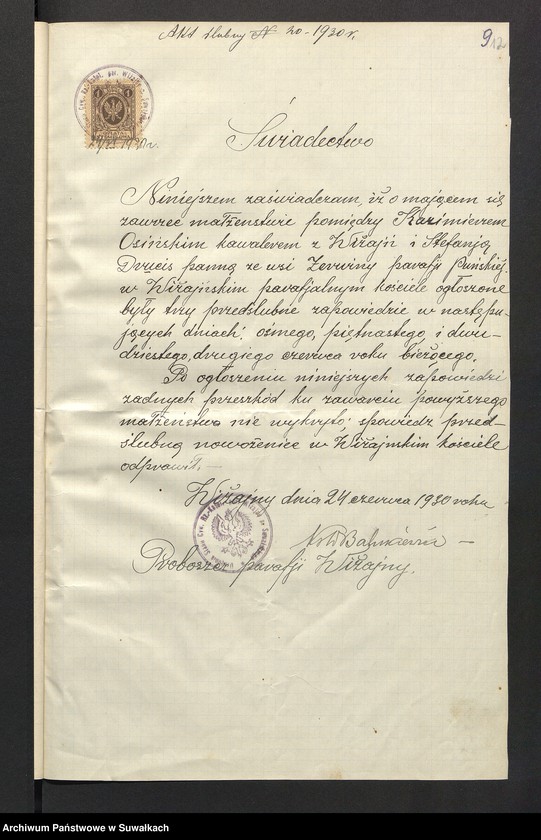 Akt ślubny N 20 - 1930 r.
9
12
1 1
Świadectwo
Niniejszem zaświadczam, iż o mającem się
zawrzeć małżeństwie pomiędzy Kazimierzem
Osińskim kawalerem z Wiżajn i Stefanją
Drucis panną ze wsi Zerwiny parafji Puńskiej.
w Wiżajńskim parafjalnym kościele ogłoszone
były trzy przedślubne zapowiedzie w następu-
jących dniach: ósmego, piętnastego i dwu-
dziestego drugiego czerwca roku bieżącego.
Po ogłoszeniu niniejszych zapowiedzi
żadnych przeszkód ku zawarciu powyższego
małżeństwa nie wykryto; spowiedź przed-
ślubną nowożeniec w Wiżajńskim kościele
odprawił. —
Wiżajny dnia 24 czerwca 1930 roku
Proboszcz parafji Wiżajny.
Archiwum Państwowe w Suwałkach